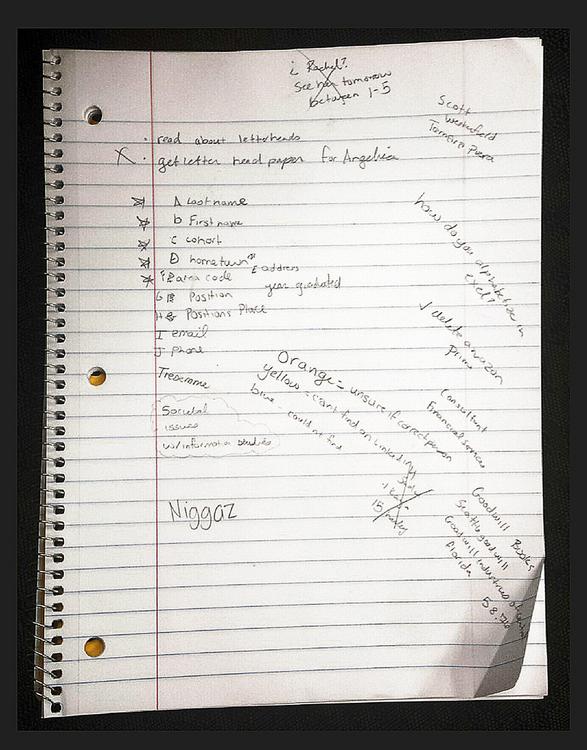 ¿ Rachel?
See her tomorrow
between 1-5
Scott
Westerfield
Tamora
· read about letterheads
X · get letter head paper for Angelica
A Last name
b First name
C cohort
D hometown
E address
area code
year graduated
G Position
H Positions Place
I email
J phone
how do you alphabetize in
excel?
✓ delete amazon
Prime
Treemme
Orange = unsure if correct person
yellow = can't find on Linkedin
blue - could not find
Consultant
Financial services
Societal
issues
w/information studies
Niggaz
15
Goodwill Books
Seattle goodwill
Goodwill Industries of
Florida